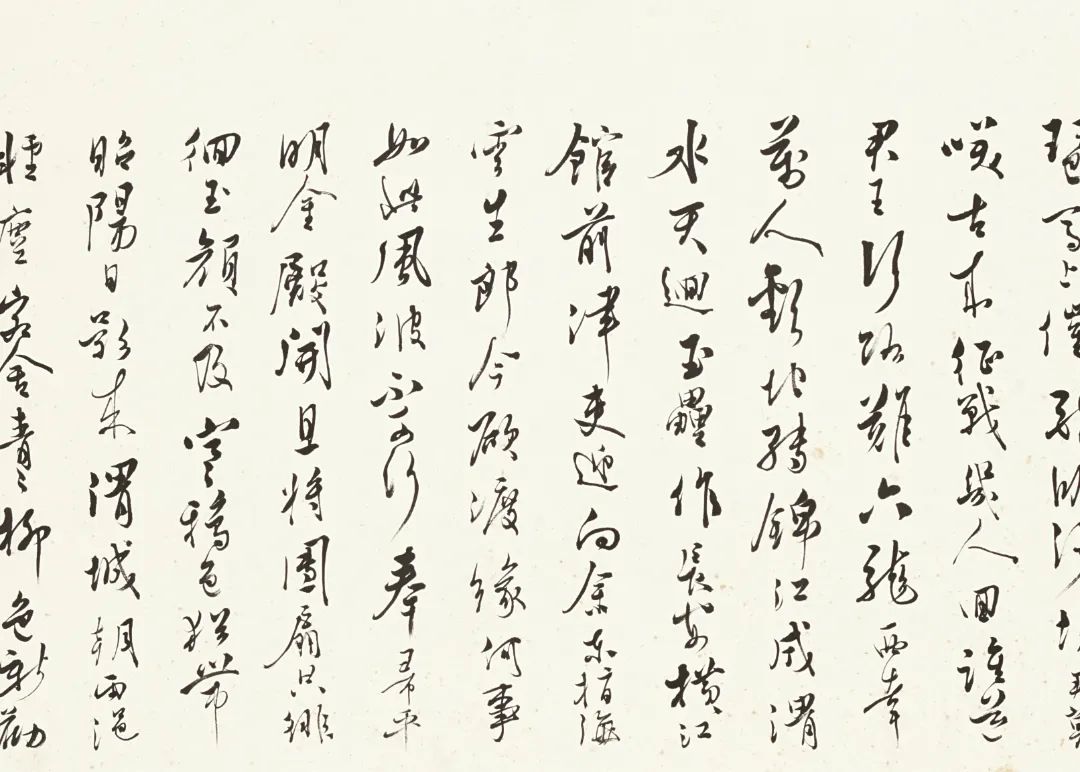 琶馬上催醉臥沙場君莫
咲古來征戰幾人回誰道
君王行路難六龍西幸
萬人歡地轉錦江成渭
水天迴玉壘作長安橫江
館前津吏迎向余東指海
雲生郎今欲渡緣何事
如此風波不可行奉帚平
明金殿開且將團扇共徘
徊玉顏不及寒鴉色猶帶
昭陽日影來渭城朝雨浥
輕塵客舍青〻柳色新勸